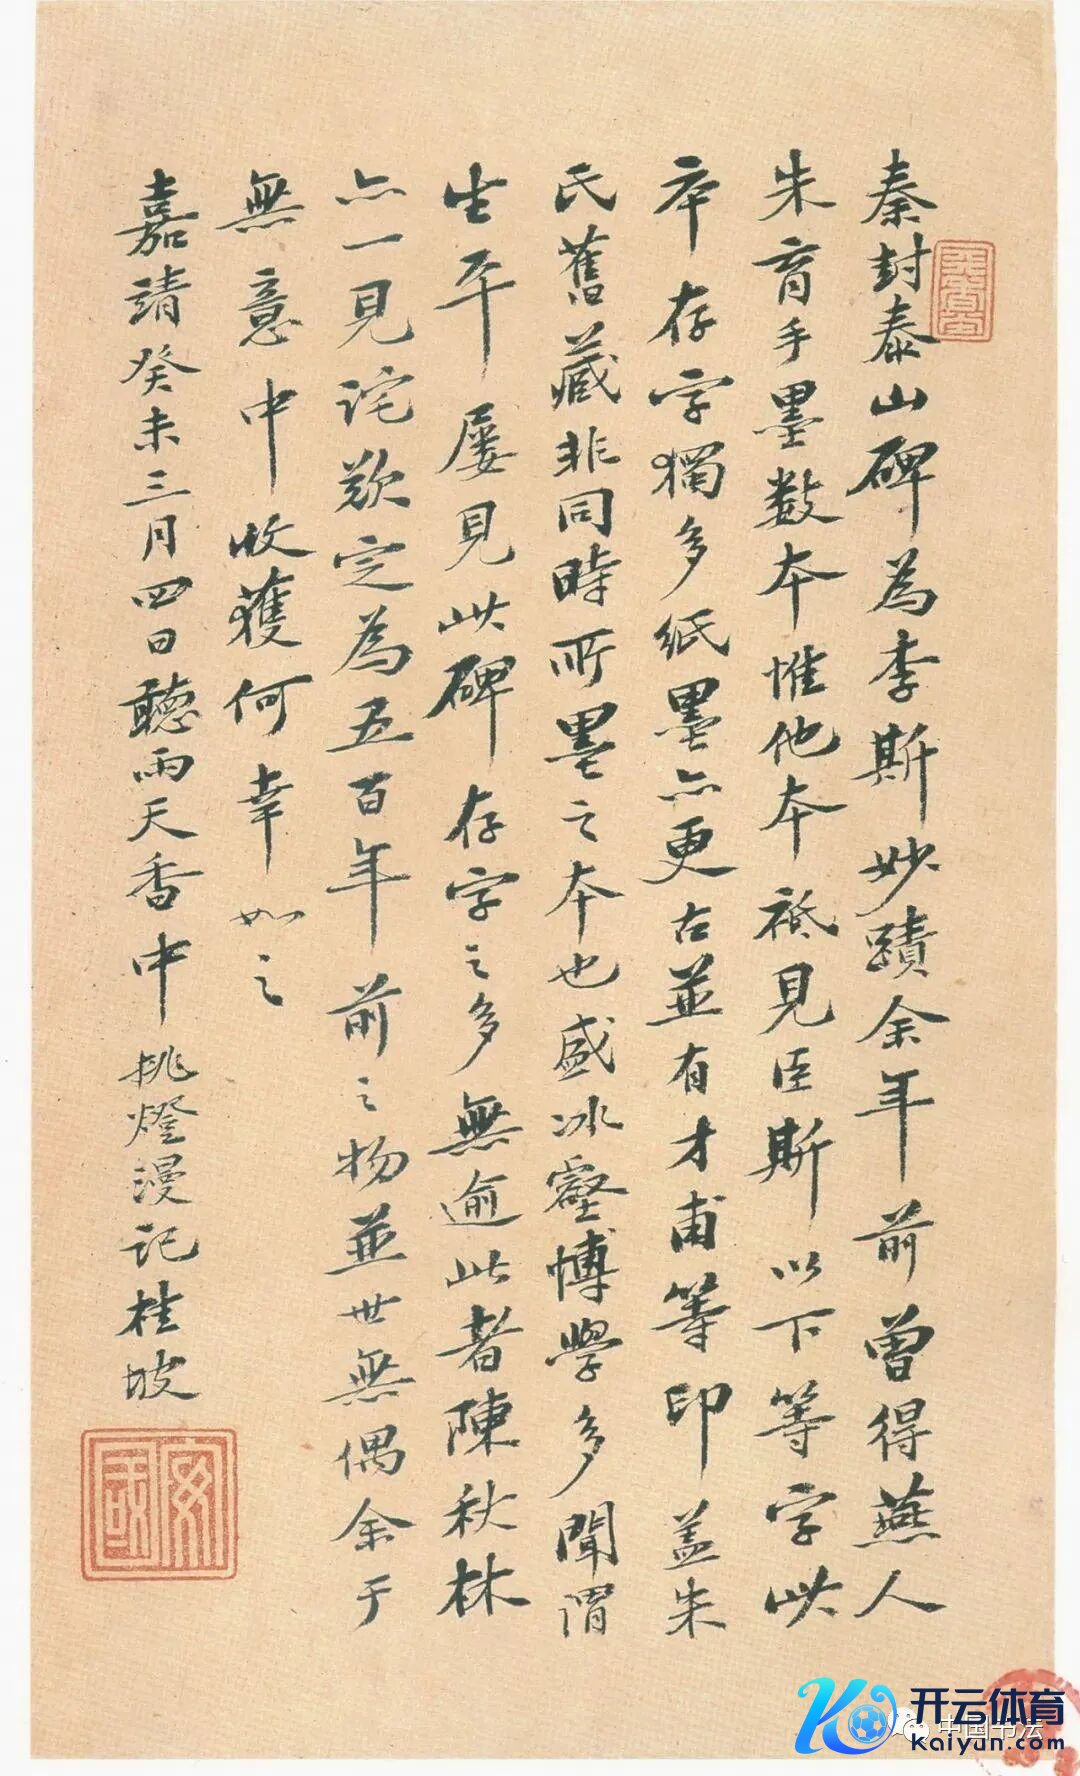 秦封泰山碑為李斯妙蹟余年前曾得燕人
朱育手墨数本惟他本祗見臣斯以下等字此
本存字獨多紙墨亦更古並有才甫等印盖朱
氏舊藏非同時所墨之本也盛冰壑博學多聞謂
生平屡見此碑存字之多無逾此者陳秋林
亦一見詫歎定為五百年前之物並世無偶余于
無意中收獲何幸如之
嘉靖癸未三月四日聽雨天香中挑燈漫記桂坡
安國
开云体育
Kaiyun.com
中国书法